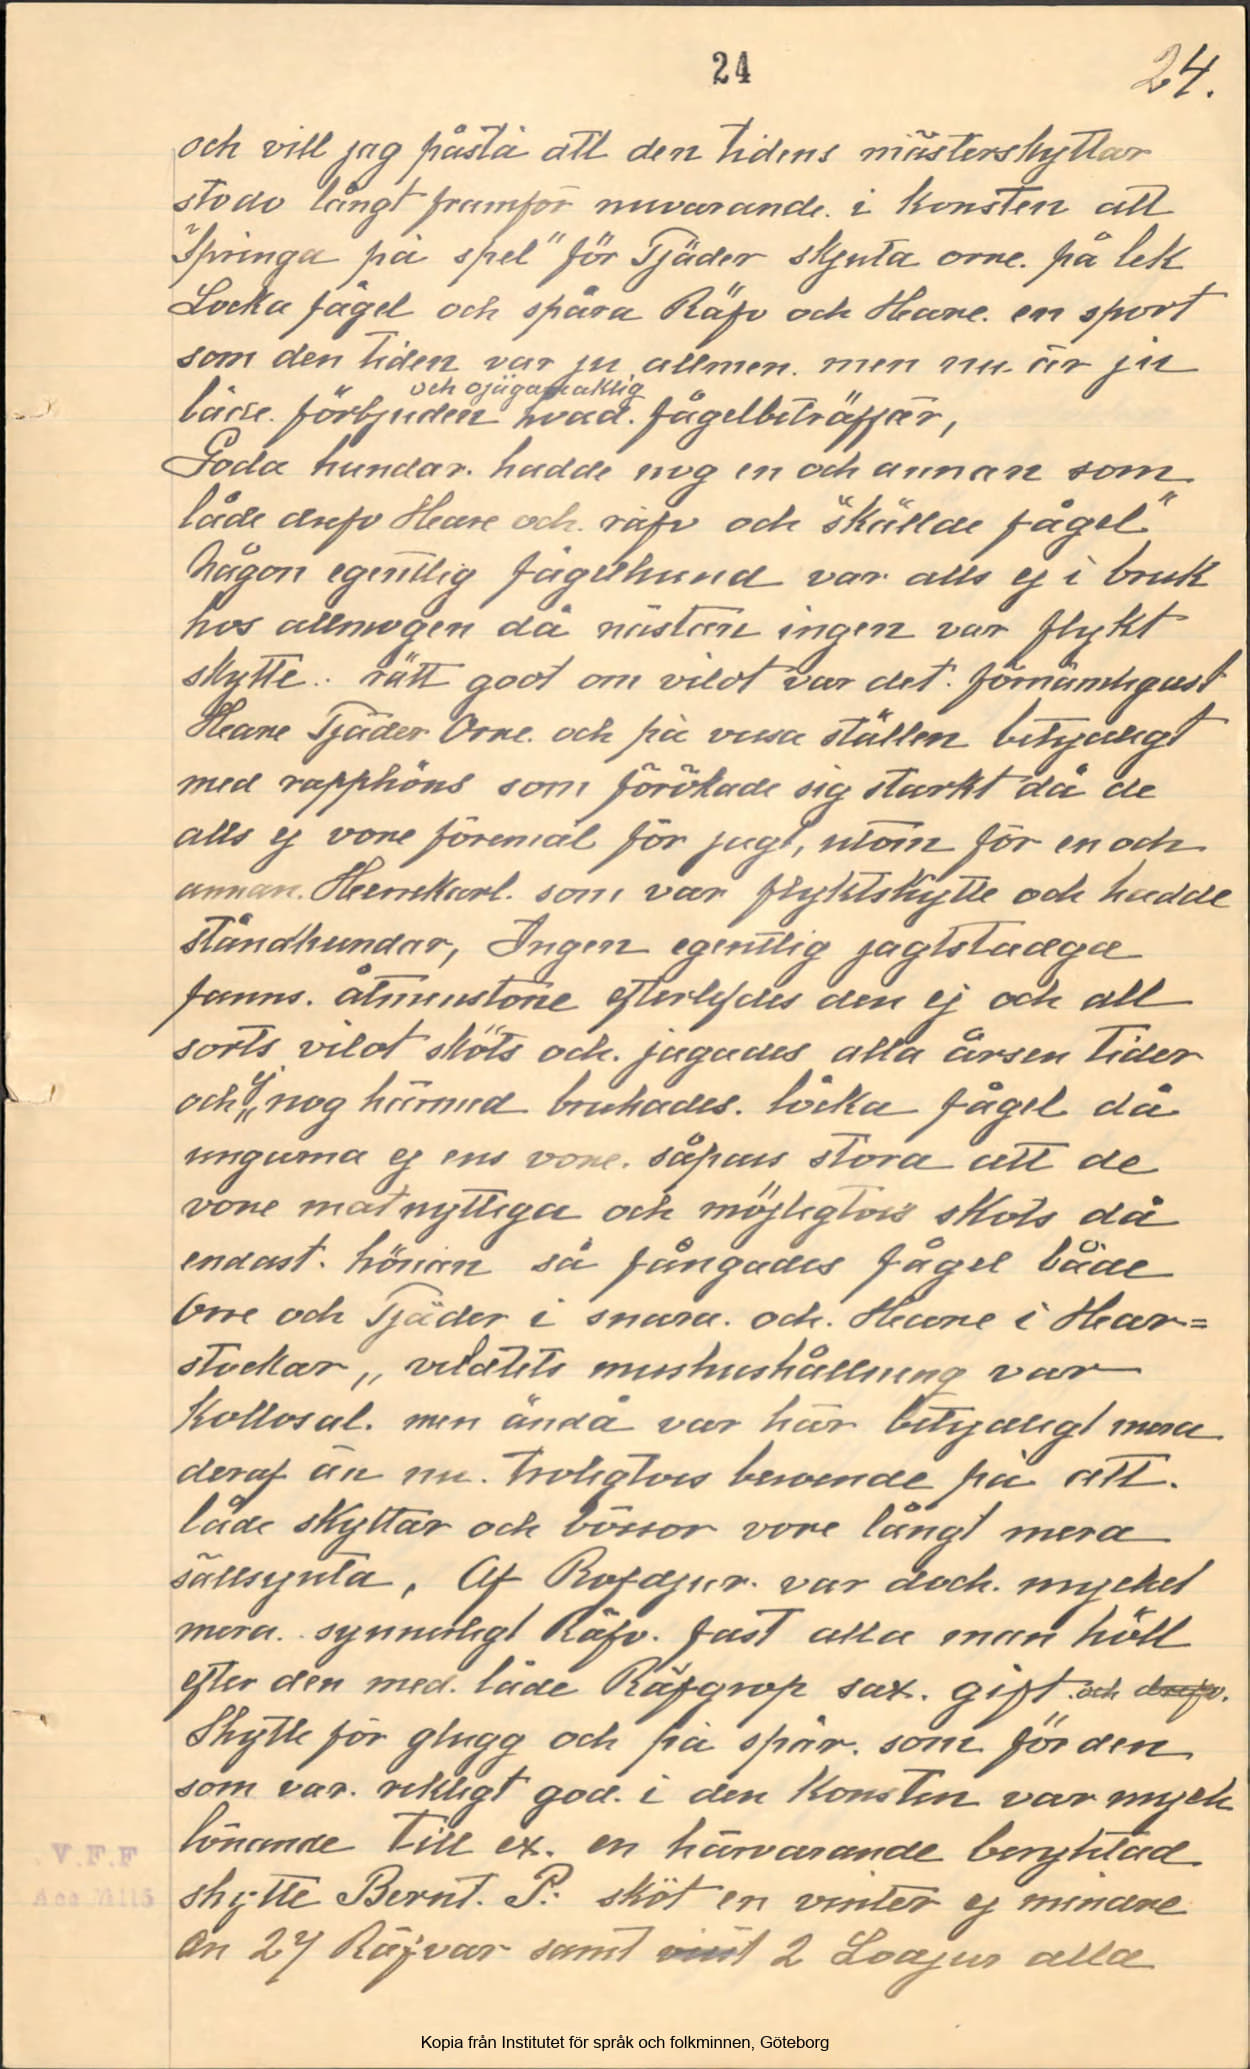 24
24.
och vill jag påstå att den tidens mästerskyttar
stodo långt framför nuvarande. i konsten att
"springa på spel" för Tjäder skjuta orre. på lek
Locka fågel och spåra Räfv och Hare. en sport
som den tiden var ju allmen. men nu är ju
och ojägarmaklig
både. förbjuden hvad. fågelbeträffar,
Goda hundar. hadde nog en och annan som
både drefv Hare och. räfv och "skällde fågel"
Någon egentlig fågelhund var alls ej i bruk
hos allmogen då nästan ingen var flykt
skytte. rätt godt om vildt var det. förnämligast
Hare Tjäder Orre. och på vissa ställen betydligt
med rapphöns som förökade sig starkt då de
alls ej vore föremål för jagt, utom för en och
annan. Herrekarl. som var flyktskytte och hadde
ståndhundar, Ingen egentlig jagtstadga
fanns. åtminstone efterlefdes den ej och all
sorts vildt sköts och. jagades alla årsen tider
och ej nog härmed brukades. locka fågel då
ungarna ej ens vore. såpass stora att de
vore matnyttiga och möjligtvis sköts då
endast. hönan så fångades fågel både
Orre och Tjäder i snara. och. Hare i Har=
stockar,, vildtets mishushållning var
Kollosal. men ändå var här betydligt mera
deraf än nu. troligtvis beroende på att.
både skyttar och bössor vore långt mera
sällsynta, Af Rofdjur. var dock. mycket
mera. synnerligt Räfv. fast alla man höll
efter den med. både Räfgrop sax. gift och drefv.
Skytte för glugg och på spår. som för den
som var. rikligt god. i den konsten var myck
lönande Till ex. en härvarande beryktad
skytte Bernt. P.: sköt en vinter ej mindre
än 27 Räfvar samt 2 Lodjur alla
V.F.F
Acc
Kopia från Institutet för språk och folkminnen, Göteborg